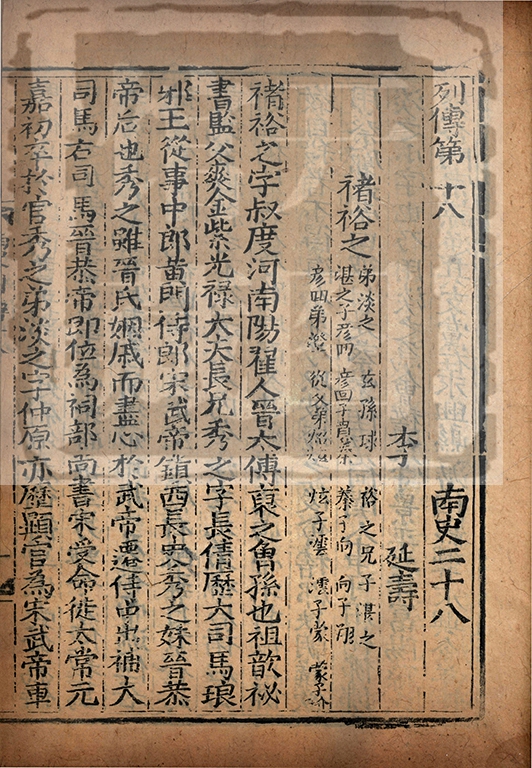 列傳第十八 南史二十八
李 延壽
褚裕之
弟淡之 玄孫球 裕之兄子湛之
湛之子彥回 彥回子賁蓁 蓁子向 向子翔
彥回弟澄 從父弟炤炫 炫子澐 澐子蒙 蒙子玠
褚裕之字叔度河南陽翟人晉太傅裒之曾孫也祖歆祕
書監父爽金紫光祿大夫長兄秀之字長倩歷大司馬琅
邪王從事中郎黃門侍郎宋武帝鎮西長史秀之妹晉恭
帝后也秀之雖晉氏姻戚而盡心於武帝遷侍中出補大
司馬右司馬晉恭帝即位為祠部尚書宋受命徙太常元
嘉初卒於官秀之弟淡之字仲原亦歷顯官為宋武帝車